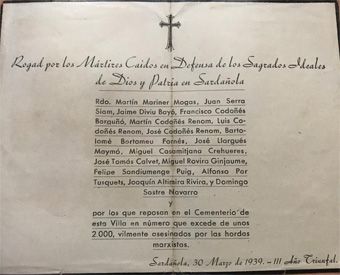 Rogad por los Mártires Caidos en Defensa de los Sagrados Ideales
de Dios y Patria en Sardañola
Rdo. Martín Mariner Mogas, Juan Serra
Siam, Jaime Diviu Bayó, Francisco Codoñés
Barguñó, Martín Codoñés Renom, Luis Co-
doñés Renom, José Codoñés Renom, Barto-
lomé Bortomeu Fornés, José Llargués
Maymó, Miguel Casamitjana Crehueres,
José Tomás Calvet, Miguel Rovira Ginjaume,
Felipe Sandiumenge Puig, Alfonso Par
Tusquets, Joaquín Altimira Rivira, y Domingo
Sastre Navarro
y
por los que reposan en el Cementerio de
esta Villa en número que excede de unos
2.000, vilmente asesinados por las hordas
marxistas.
Sardañola, 30 Marzo de 1939.- III Año Triunfal.